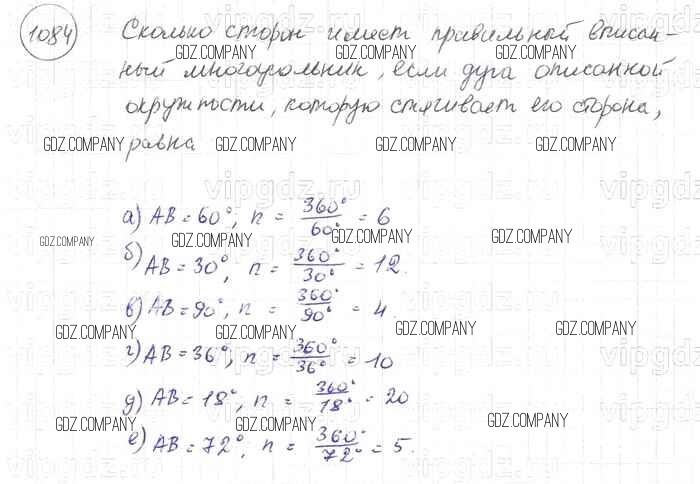 1084 Сколько сторон имеет правильный вписан-
ный многоугольник, если дуга описанной
окружности, которую стягивает его сторона,
равна
а) AB = 60°; n = 360°/60° = 6
б) AB = 30°, n = 360°/30° = 12.
в) AB = 90°, n = 360°/90° = 4.
г) AB = 36°, n = 360°/36° = 10
д) AB = 18°, n = 360°/18° = 20
е) AB = 72°, n = 360°/72° = 5.
GDZ.COMPANY GDZ.COMPANY GDZ.COMPANY
GDZ.COMPANY GDZ.COMPANY GDZ.COMPANY GDZ.COMPANY
GDZ.COMPANY GDZ.COMPANY GDZ.COMPANY GDZ.COMPANY
GDZ.COMPANY GDZ.COMPANY GDZ.COMPANY
GDZ.COMPANY GDZ.COMPANY GDZ.COMPANY
GDZ.COMPANY GDZ.COMPANY GDZ.COMPANY
vipgdz.ru